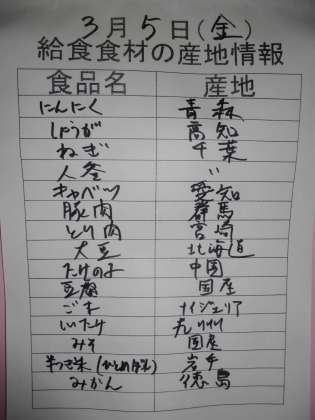 3月5日(金)
給食食材の産地情報
食品名 産地
にんにく 青森
しょうが 高知
ねぎ 千葉
人参 〃
キャベツ 愛知
豚肉 群馬
とり肉 宮崎
大豆 北海道
たけのこ 中国
豆腐 国産
ごま ナイジェリア
しいたけ 九州
みそ 国産
米つき米(ひとめぼれ) 岩手
みかん 徳島